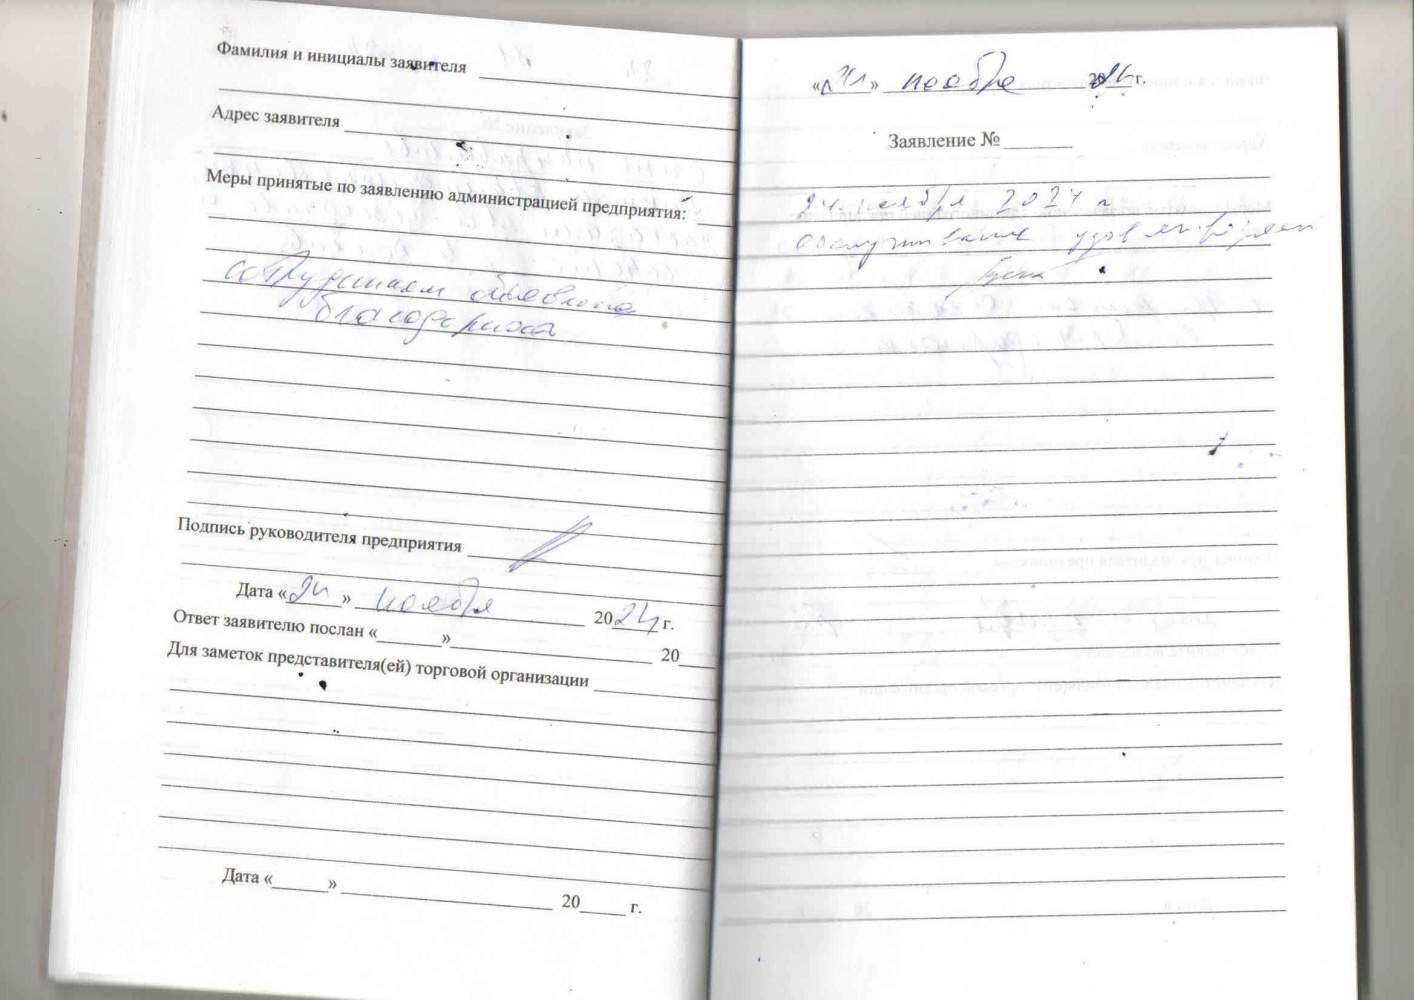 Фамилия и инициалы заявителя
Адрес заявителя
Меры принятые по заявлению администрацией предприятия:
сотрудникам объявлена
благодарность
Подпись руководителя предприятия
Дата «24» ноября 2024 г.
Ответ заявителю послан «» 20
Для заметок представителя(ей) торговой организации
Дата «» 20 г.
«24» ноября 20 г.
Заявление №
24 ноября 2024 г
Обслуживание